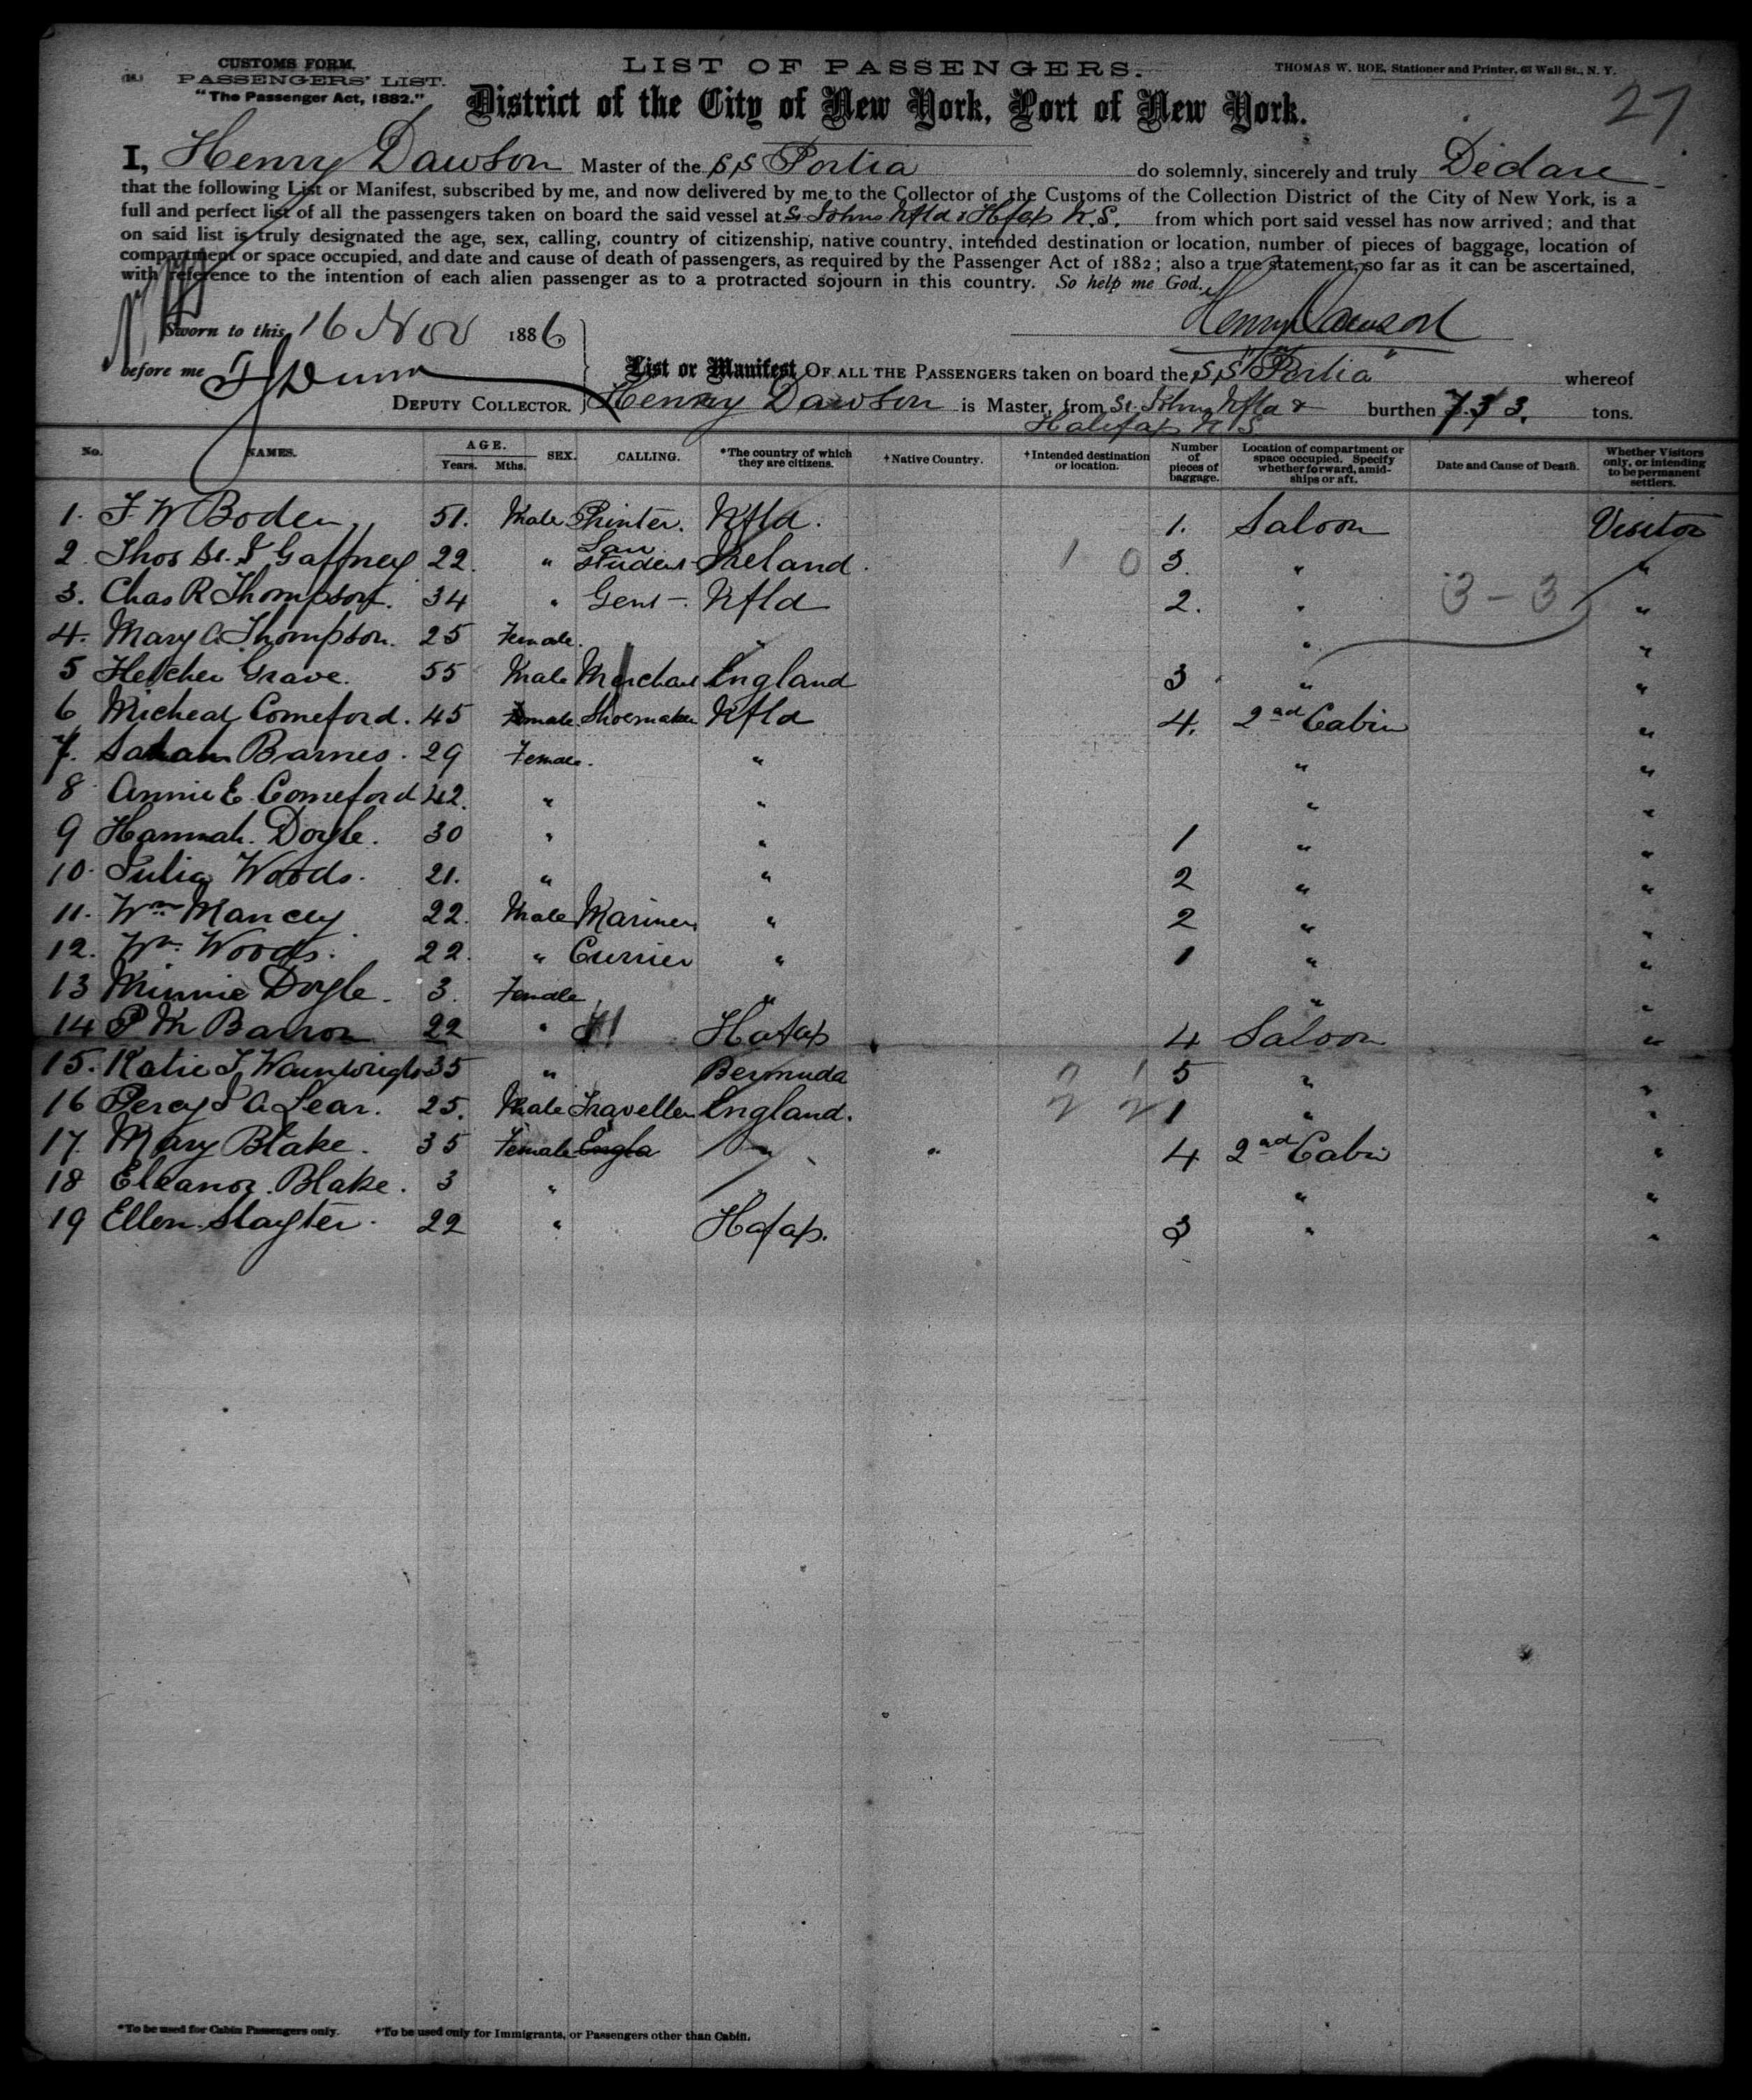 CUSTOMS FORM.
PASSENGERS' LIST.
"The Passenger Act, 1882."
LIST OF PASSENGERS.
THOMAS W. ROE, Stationer and Printer, 63 Wall St., N. Y.
27
District of the City of New York, Port of New York.
I, Henry Dawson Master of the SS Portia do solemnly, sincerely and truly Declare
that the following List or Manifest, subscribed by me, and now delivered by me to the Collector of the Customs of the Collection District of the City of New York, is a
full and perfect list of all the passengers taken on board the said vessel at St. Johns Nfld & Hfax N.S. from which port said vessel has now arrived; and that
on said list is truly designated the age, sex, calling, country of citizenship, native country, intended destination or location, number of pieces of baggage, location of
compartment or space occupied, and date and cause of death of passengers, as required by the Passenger Act of 1882; also a true statement, so far as it can be ascertained,
with reference to the intention of each alien passenger as to a protracted sojourn in this country. So help me God.
Sworn to this 16 Nov 1886
Henry Dawson
before me
DEPUTY COLLECTOR.
List or Manifest OF ALL THE PASSENGERS taken on board the S,S "Portia" whereof
Henry Dawson is Master, from St. Johns Nfld & burthen 733. tons.
Halifax N S
No. NAMES. AGE. Years. Mths. SEX. CALLING. *The country of which they are citizens. †Native Country. †Intended destination or location. Number of pieces of baggage. Location of compartment or space occupied. Specify whether forward, amidships or aft. Date and Cause of Death. Whether Visitors only, or intending to be permanent settlers.
1. F. W Boden 51. Male Printer. Nfld. 1. Saloon Visitor
2 Thos Gaffney 22. " Law student Ireland. 1 0 3. " "
3. Chas R Thompson. 34 " Gent - Nfld 2. " 3 - 3 "
4. Mary C. Thompson. 25 Female. " " "
5 Grave. 55 Male Merchant England 3 " "
6 Micheal Comeford. 45 male Shoemaker Nfld 4. 2nd Cabin "
7. Sarah Barnes. 29 Female. " " "
8 Annie E. Comeford 42. " " " "
9 Hannah. Doyle. 30 " " 1 " "
10. Julia Woods. 21. " " 2 " "
11. Wm Mancey 22. Male Mariner " 2 " "
12. Wm. Woods. 22. " Currier " 1 " "
13 Minnie Doyle. 3. Female " " "
14 P M Barron 22 " Hafax 4 Saloon "
15. Katie J Wainwright 35 " Bermuda 5 " "
16 Percy Lear. 25. Male Traveller England. 2 2 1 " "
17. Mary Blake. 35 Female Engla " " 4 2nd Cabin "
18 Eleanor. Blake. 3 " " "
19 Ellen Slayter. 22 " Hafax. 3 " "
*To be used for Cabin Passengers only. †To be used only for Immigrants, or Passengers other than Cabin.